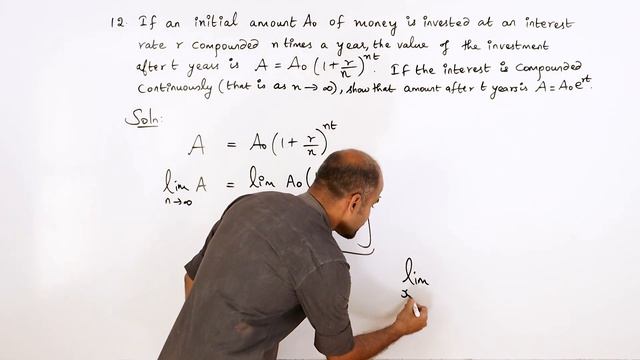 12. If an initial amount A₀ of money is invested at an interest
rate r compounded n times a year, the value of the investment
after t years is A = A₀(1+r/n)^nt. If the interest is compounded
continuously (that is as n→∞), show that amount after t years is A = A₀e^rt.
Soln:
A = A₀(1+r/n)^nt
lim n→∞ A = lim A₀(
lim
x